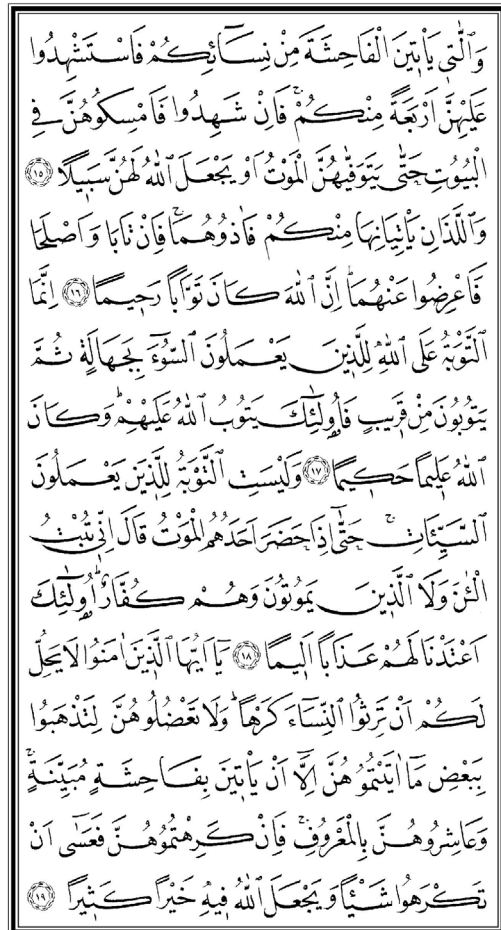 وَالّٰت۪ي يَأْت۪ينَ الْفَاحِشَةَ مِنْ نِسَٓائِكُمْ فَاسْتَشْهِدُوا
عَلَيْهِنَّ اَرْبَعَةً مِنْكُمْۚ فَاِنْ شَهِدُوا فَاَمْسِكُوهُنَّ فِي
الْبُيُوتِ حَتّٰى يَتَوَفّٰيهُنَّ الْمَوْتُ اَوْ يَجْعَلَ اللّٰهُ لَهُنَّ سَب۪يلًا ﴿١٥﴾
وَالَّلذَانِ يَأْتِيَانِهَا مِنْكُمْ فَاٰذُوهُمَاۚ فَاِنْ تَابَا وَاَصْلَحَا
فَاَعْرِضُوا عَنْهُمَاۜ اِنَّ اللّٰهَ كَانَ تَوَّابًا رَح۪يمًا ﴿١٦﴾ اِنَّمَا
التَّوْبَةُ عَلَى اللّٰهِ لِلَّذ۪ينَ يَعْمَلُونَ السُّٓوءَ بِجَهَالَةٍ ثُمَّ
يَتُوبُونَ مِنْ قَر۪يبٍ فَاُو۬لٰٓئِكَ يَتُوبُ اللّٰهُ عَلَيْهِمْۜ وَكَانَ
اللّٰهُ عَل۪يمًا حَك۪يمًا ﴿١٧﴾ وَلَيْسَتِ التَّوْبَةُ لِلَّذ۪ينَ يَعْمَلُونَ
السَّيِّـَٔاتِۚ حَتّٰٓى اِذَا حَضَرَ اَحَدَهُمُ الْمَوْتُ قَالَ اِنّ۪ي تُبْتُ
الْـٰٔنَ وَلَا الَّذ۪ينَ يَمُوتُونَ وَهُمْ كُفَّارٌۜ اُو۬لٰٓئِكَ
اَعْتَدْنَا لَهُمْ عَذَابًا اَل۪يمًا ﴿١٨﴾ يَٓا اَيُّهَا الَّذ۪ينَ اٰمَنُوا لَا يَحِلُّ
لَكُمْ اَنْ تَرِثُوا النِّسَٓاءَ كَرْهًاۜ وَلَا تَعْضُلُوهُنَّ لِتَذْهَبُوا
بِبَعْضِ مَٓا اٰتَيْتُمُوهُنَّ اِلَّٓا اَنْ يَأْت۪ينَ بِفَاحِشَةٍ مُبَيِّنَةٍۚ
وَعَاشِرُوهُنَّ بِالْمَعْرُوفِۚ فَاِنْ كَرِهْتُمُوهُنَّ فَعَسٰٓى اَنْ
تَكْرَهُوا شَيْـًٔا وَيَجْعَلَ اللّٰهُ ف۪يهِ خَيْرًا كَث۪يرًا ﴿١٩﴾